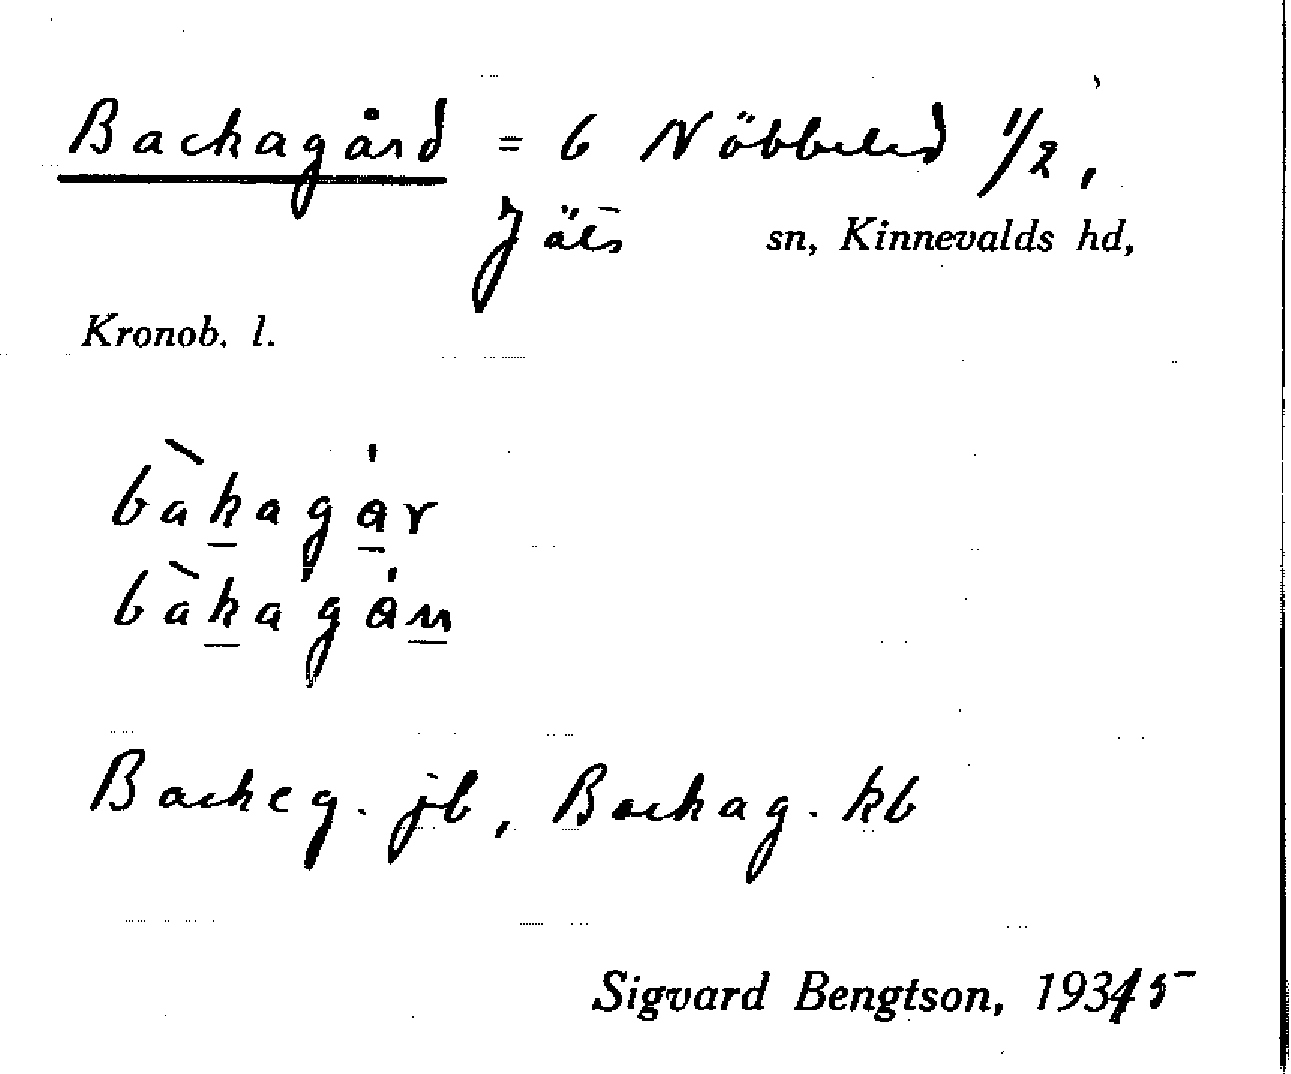 Backagård = 6 Nöbbeled 1/2,
Jäts sn, Kinnevalds hd,
Kronob. l.
bàkagár
bàkagán
Backeg. jb, Backag. kb
Sigvard Bengtson, 1945